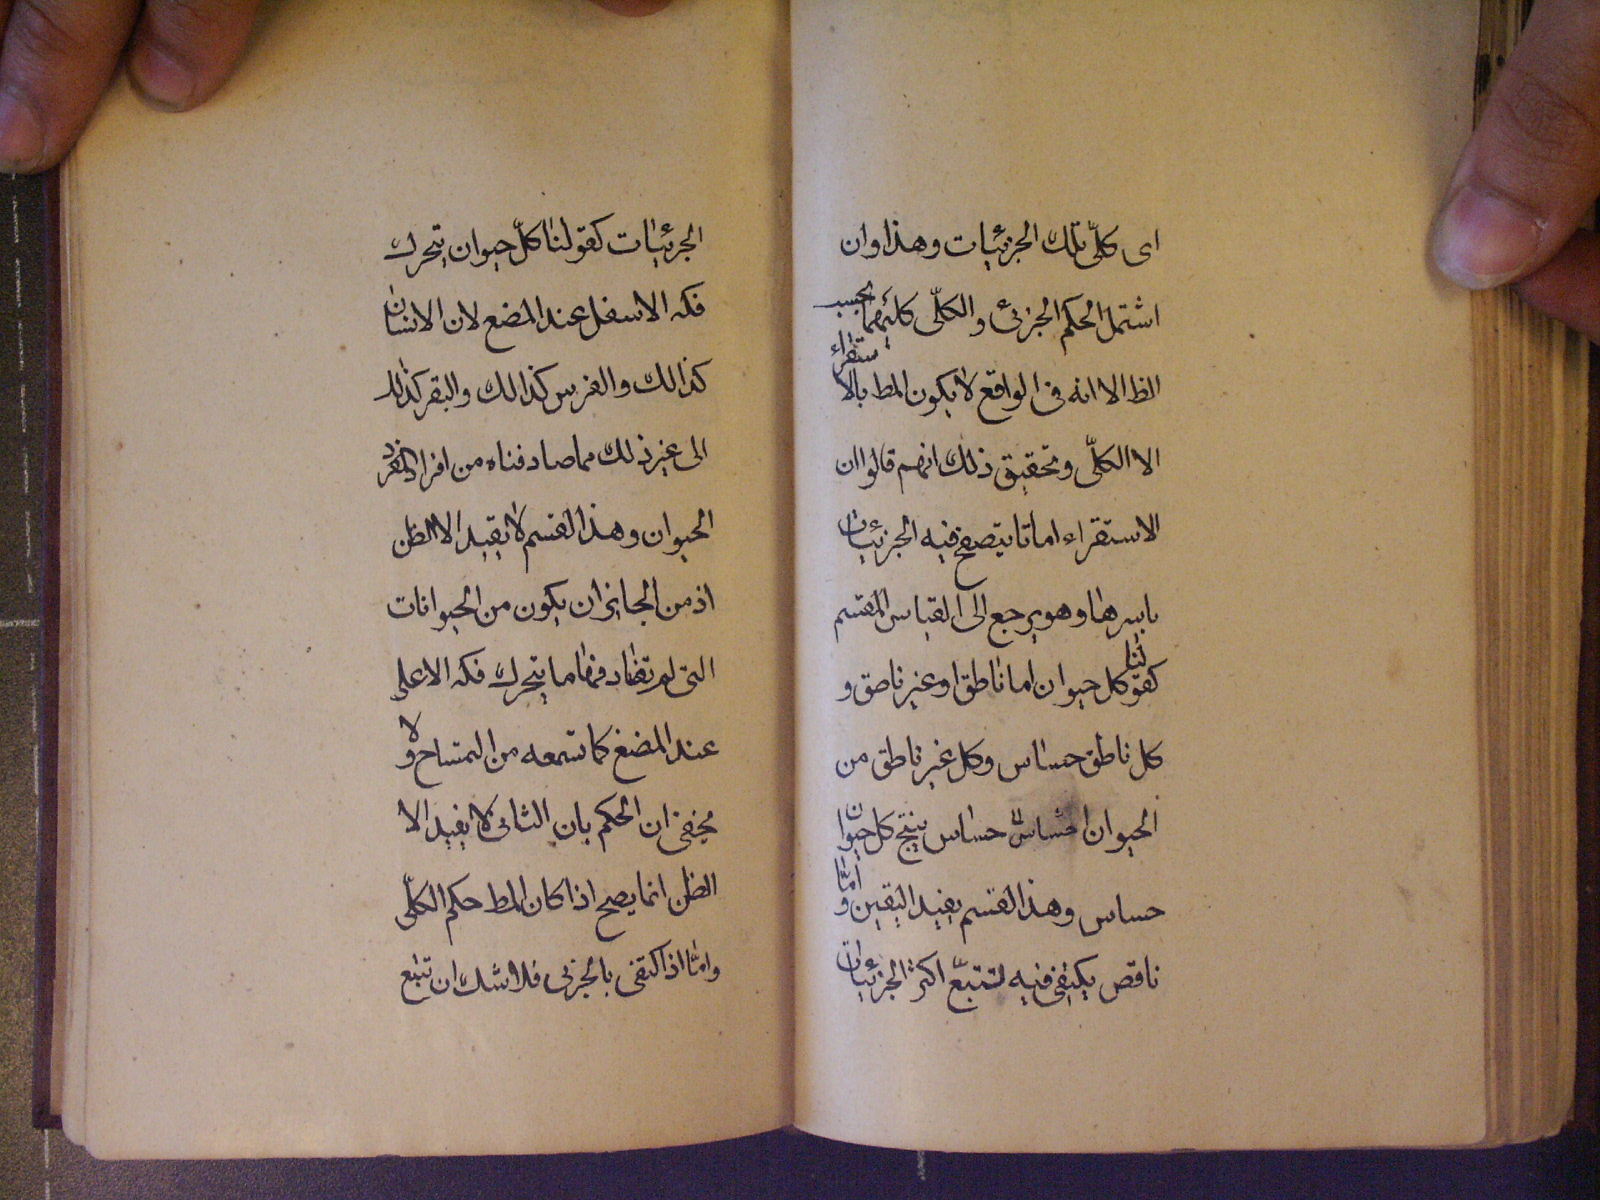 اى كلّى تلك الجزئيات وهذا وان
اشتمل الحكم الجزئى والكلّى كليهما بحسب
الظ الا انه فى الواقع لا يكون المط بالاستقراء
الا الكلّى وتحقيق ذلك انهم قالوا ان
الاستقراء اما تام يتصفح فيه الجزئيات
باسرها وهو يرجع الى القياس المقسم
كقولنا كل حيوان اما ناطق او غير ناطق و
كل ناطق حساس وكل غير ناطق من
الحيوان حساس ينتج كل حيوان
حساس وهذا القسم يفيد اليقين واما
ناقص يكتفى فيه لتتبّع اكثر الجزئيات
الجزئيات كقولنا كلّ حيوان يتحرك
فكه الاسفل عند المضع لان الانسان
كذالك والفرس كذالك والبقر كذلك
الى غير ذلك مما صادفناه من افراد
الحيوان وهذا القسم لا يفيد الا الظن
اذ من الجايز ان يكون من الحيوانات
التى لم نصادفها ما يتحرك فكه الاعلى
عند المضغ كما نسمعه من التمساح ولا
يخفى ان الحكم بان الثانى لا يفيد الا
الظن انما يصح اذا كان المط حكم الكلّى
وامّا اذا اكتفى بالجزئى فلا شك ان تتبع